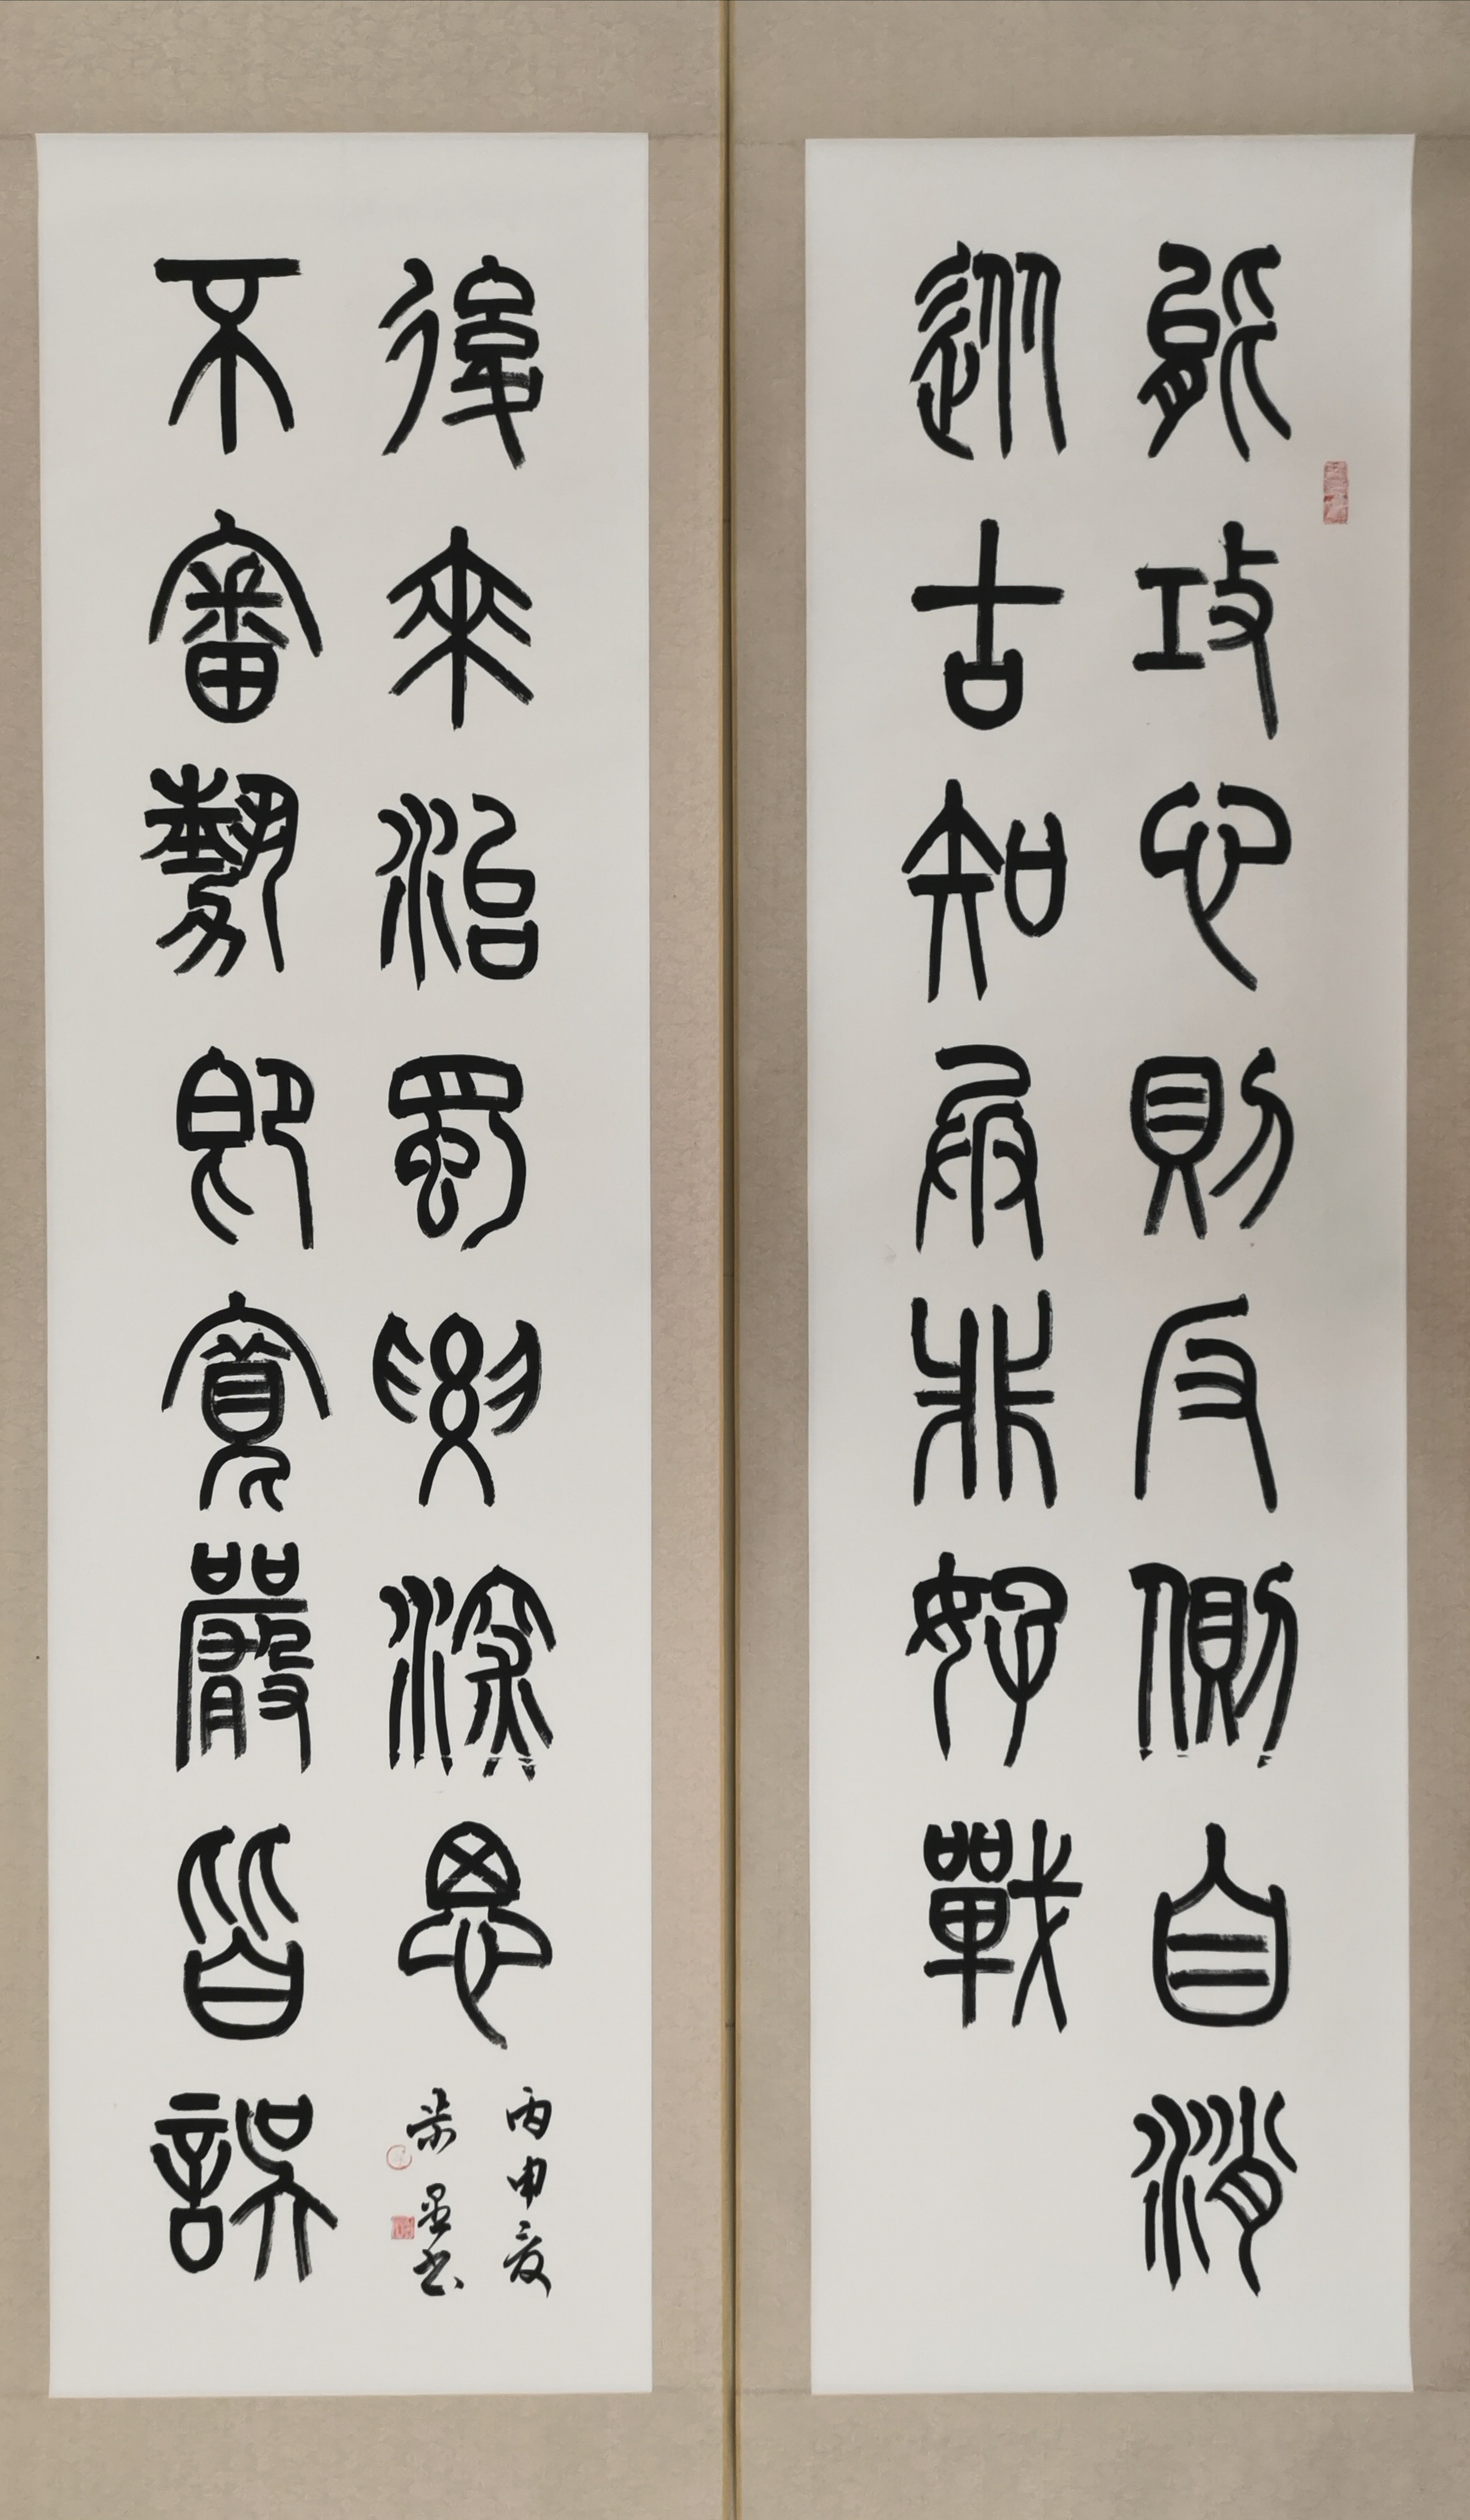 能攻心則反側自消
從古知兵非好戰
不審勢即寬嚴皆誤
後來治蜀要深思
丙申夏
书